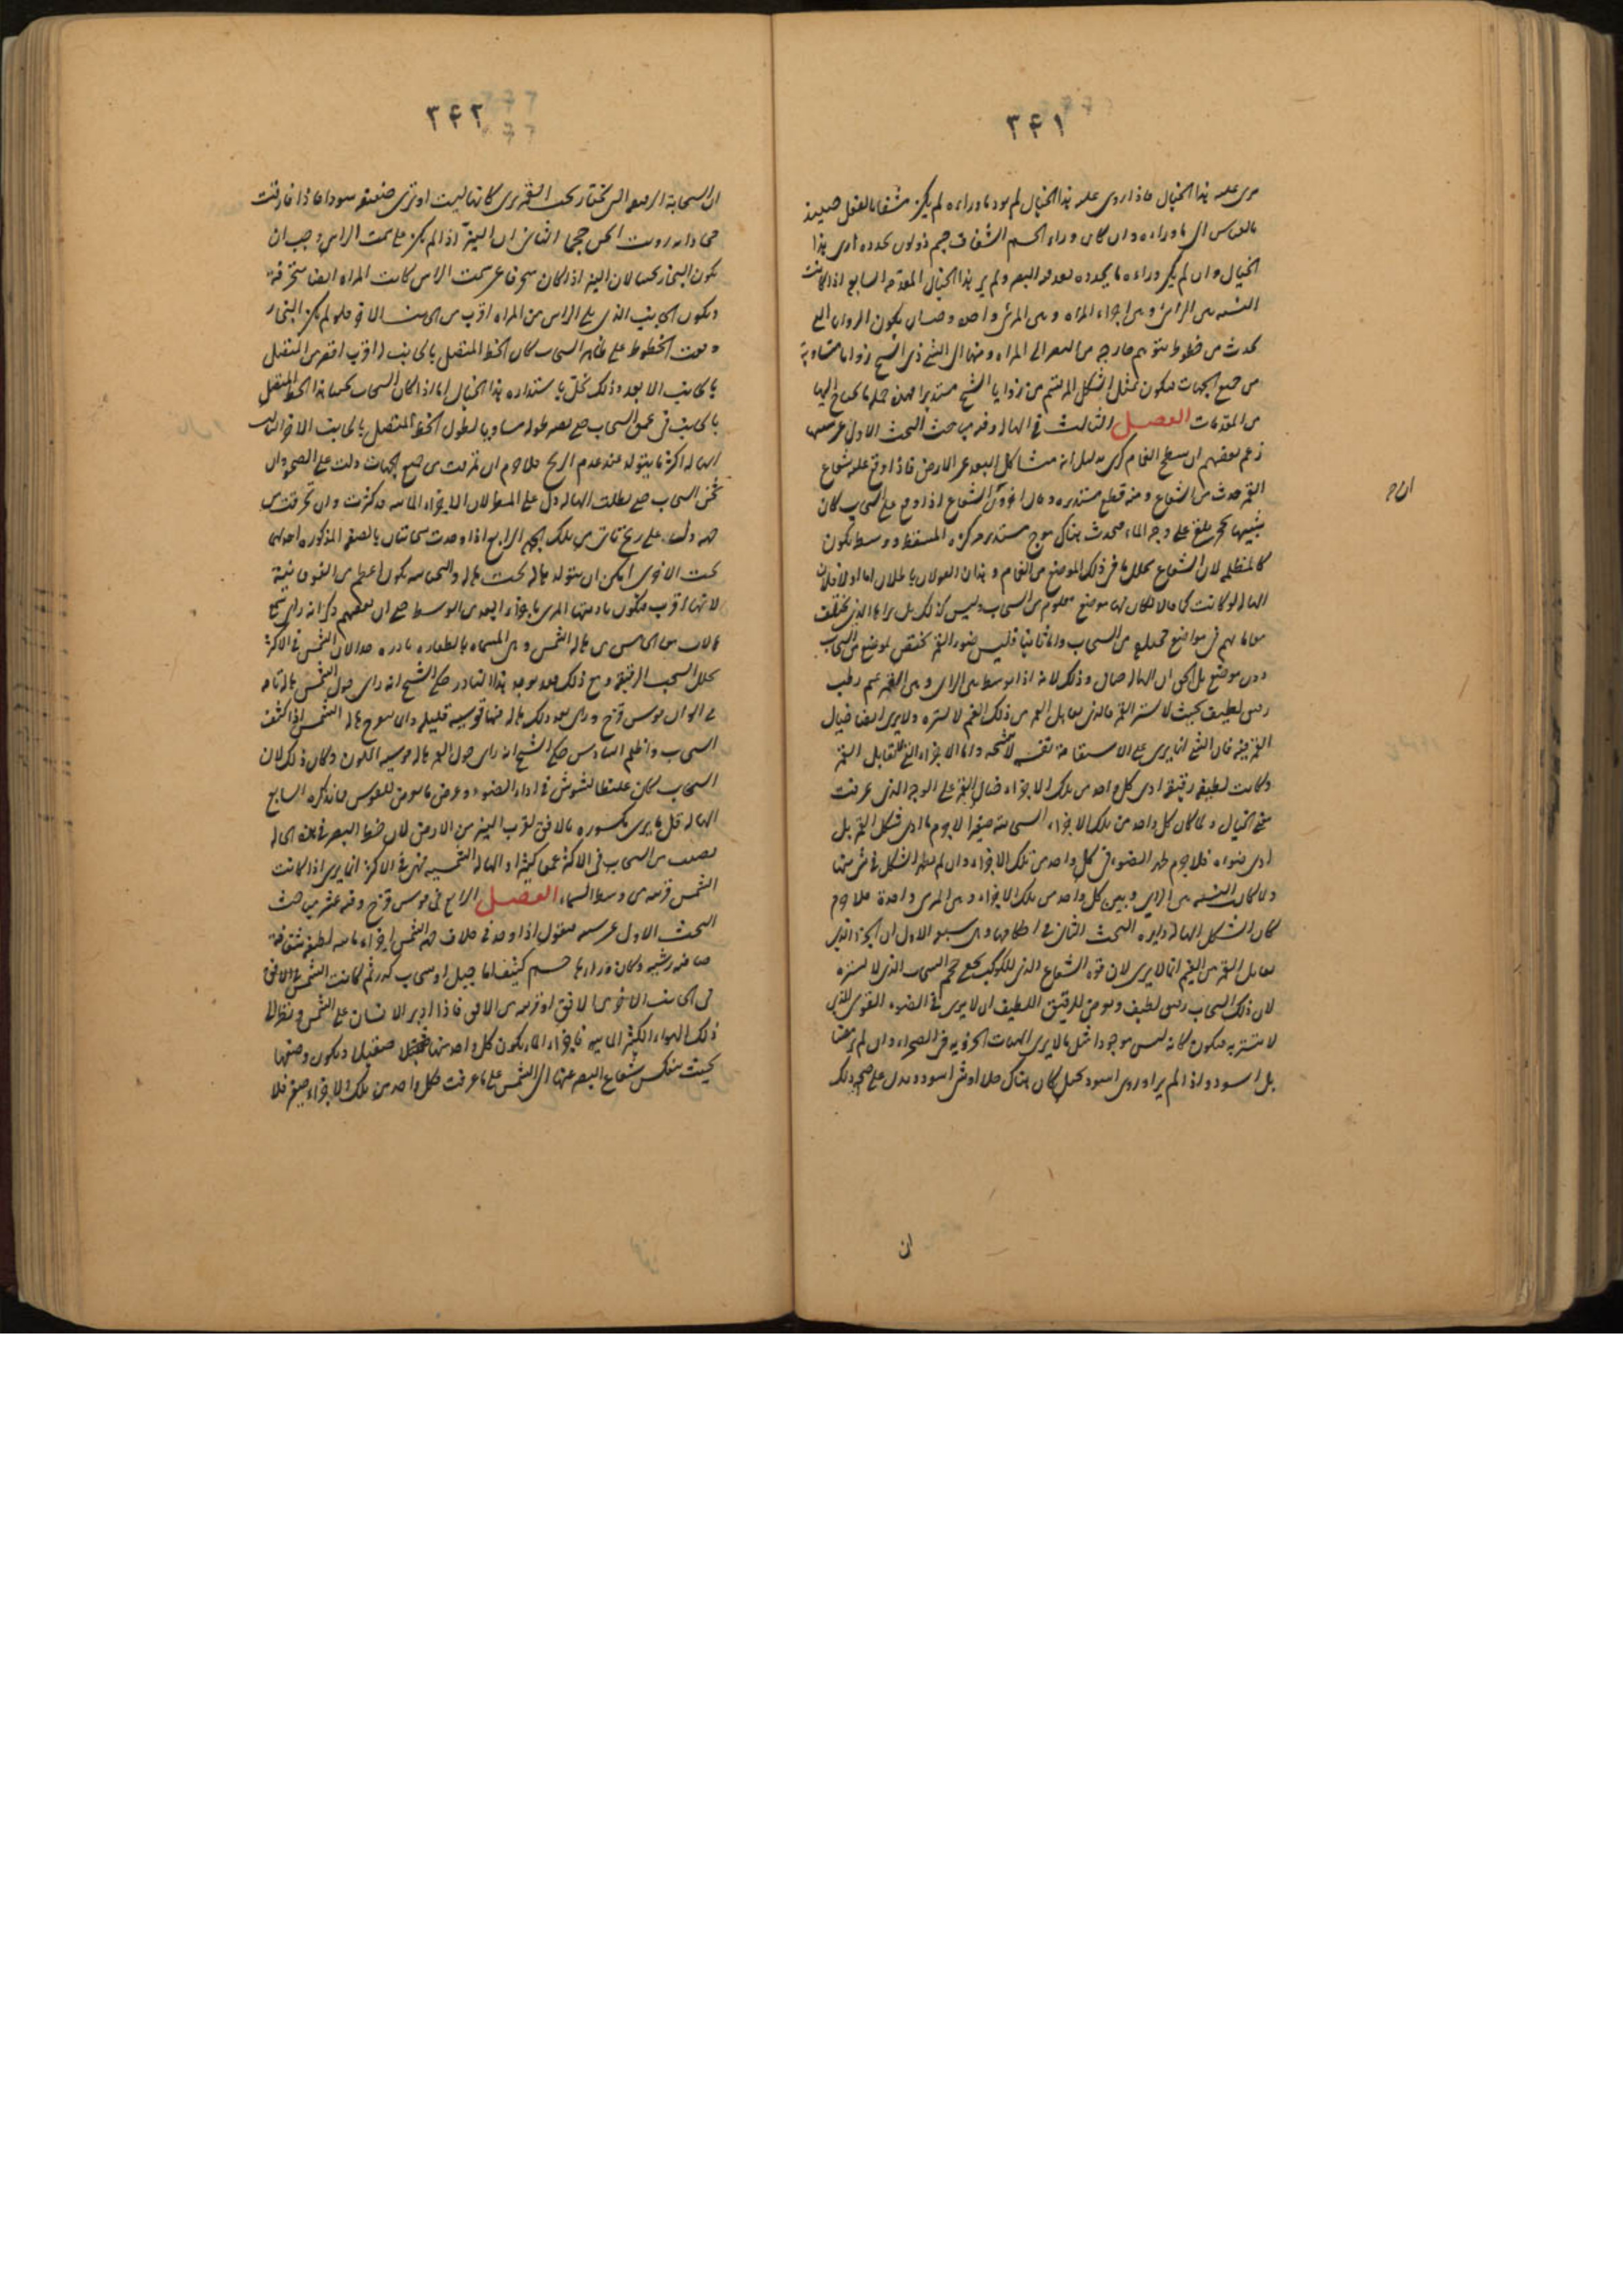 ٣٤١
مرى عليه هذا الخيال فاذا روى عليه هذا الخيال لم يود ما وراءه لم يكن شفافا بالفعل حينئذ
بالقياس الى ما وراءه وان كان وراء الجسم الشفاف جسم ذو لون يحدده ادى هذا
الخيال وان لم يكن وراءه ما يحدده نفذ فيه البصر ولم ير هذا الخيال المقدمة السابع اذا كانت
النسبة بين الرائى وبين اجزاء المراه وبين المرئى واحدة وجب ان يكون الزوايا التى
تحدث من خطوط تتوهم خارجه من البصر الى المراه ومنها الى الشئ ذى الشبح زوايا متساوية
من جميع الجهات فيكون تمثل الشكل الملتئم من زوايا الشبح مستديرا فهذه جملة ما يحتاج اليها
من المقدمات الفصل الثالث فى الهاله وفيه مباحث البحث الاول عن سببها
زعم بعضهم ان سطح الغمام كرى بدليل انه متشاكل البعد عن الارض فاذا وقع عليه شعاع
القمر حدث من الشعاع ومنه قطع مستديره وقال اخرون الشعاع اذا وقع على السحاب كان
شبيها بحجر يلقى على وجه الماء فيحدث هناك موج مستدير مركزه المسقط ووسط يكون
كالمظلم لان الشعاع يحلل ما فى ذلك الموضع من الغمام وهذان القولان باطلان اما اولا فلان
الهاله لو كانت كما قالا لكان لها موضع معلوم من السحاب وليس كذلك بل يراها الذين يختلف
مقاماتهم فى مواضع مختلفه من السحاب واما ثانيا فليس ضوء القمر يختص بموضع من السحاب
دون موضع بل الحق ان الهاله خيال وذلك لانه اذا توسط بين الرائى وبين القمر غيم رطب
رقيق لطيف بحيث لا يستر القمر فالذى يقابل القمر من ذلك الغيم لا يستره ولا يرى ايضا خيال
القمر فيه فان الشئ انما يرى على الاستقامة نفسه لا شبحه واما الاجزاء التى لا تقابل القمر
وكانت لطيفه رقيقه ادى كل واحد من تلك الاجزاء خيال القمر على الوجه الذى عرفت
فى الخيال ولما كان كل واحد من تلك الاجزاء السحابية صغيرا لا جرم ما ادى شكل القمر بل
ادى ضوءه فلا جرم ظهر الضوء فى كل واحد من تلك الاجزاء وان لم يظهر الشكل فى شئ منها
ولما كانت النسبة بين الرائى وبين كل واحد من تلك الاجزاء وبين المرئى واحدة فلا جرم
كان شكل الهاله دايره البحث الثانى فى احكامها وهى سبعه الاول ان الجزء الذى
يقابل القمر من الغيم انما لا يرى لان قوه الشعاع الذى للكوكب يخفى حجم السحاب الذى لا يستره
لان ذلك السحاب رقيق لطيف ويعرض للرقيق اللطيف ان لا يرى فى الضوء القوى الذى
لا يستتر به فيكون كانه ليس موجودا مثل ما لا يرى الهبآت الجزئية فى الصحراء وان لم يرمضا
بل اسود واذا لم ير او روى اسود تخيل كان هناك خلا او شئ اسود ويدل على صحه ذلك
ان
٣٤٢
ان السحابة الرقيقه التى تجتاز تحت القمر يرى كانها ليست او ترى ضعيفه سوداء فاذا فارقت
محاذاته رويت اثخن حجما الثانى ان النير اذا لم يكن على سمت الراس وجب ان
يكون البخار ثخينا لان النير اذا كان منحرفا عن سمت الراس كانت المراه ايضا منحرفة
ويكون الجانب الذى يلى الراس من المراه اقرب من الجانب الاخر فلو لم يكن البخار
وقعت الخطوط على ظاهر السحاب كان الخط المتصل بالجانب الاقرب اقصر من المتصل
بالجانب الابعد وذلك يخل باستدارة هذا الخيال اما اذا كان السحاب ثخينا نفذ الخط المتصل
بالجانب فى عمق السحاب حتى يصير طوله مساويا لطول الخط المتصل بالجانب الاخر الثالث
الهاله اكثر ما يتولد عند عدم الريح فلا جرم ان تمزقت من جميع الجهات دلت على الصحو وان
ثخن السحاب حتى بطلت الهاله دل على المطر لان الاجزاء المائيه قد كثرت وان تمزقت من
جهه دلت على ريح تاتى من تلك الجهه الرابع اذا وجدت سحابتان بالصفه المذكوره احداهما
تحت الاخرى امكن ان يتولد هاله تحت هاله والتحتانيه يكون اعظم من الفوقانية
لانها اقرب فيكون تاديتها المرئى باجزاء ابعد من الوسط حتى ان بعضهم ذكر انه راى سبع
هالات معا الخامس من هاله الشمس وهى المسماه بالطفاوه نادره جدا لان الشمس فى الاكثر
تحلل السحب الرقيقه ومع ذلك فقد يوجد هذا النادر حكى الشيخ انه راى حول الشمس هاله تامه
فى الوان قوس قزح وراى بعد ذلك هاله فيها قوسية قليله وانما ينفرج هاله الشمس اذا كثف
السحاب واظلم السادس حكى الشيخ انه راى حول القمر هاله قوسية اللون وكان ذلك لان
السحاب كان غليظا فشوش فى اداء الضوء وعرض ما يعرض للقوس مما نذكره السابع
الهاله قل ما يرى مكسوره بالافق لقرب النير من الارض لان خط البصر فى هذه الحاله
يصيب من السحاب فى الاكثر عمقا كثيرا والهاله الشمسيه فهى فى الاكثر انما يرى اذا كانت
الشمس قريبه من وسط السماء الفصل الرابع فى قوس قزح وفيه عشر مباحث
البحث الاول عن سببه فنقول اذا وجد فى خلاف جهه الشمس اجزاء مائيه لطيفه شفافة
صافيه رشية وكان وراءها جسم كثيف اما جبل او سحاب كدر ثم كانت الشمس على الافق
فى الجانب الاخر من الافق او قريبه من الافق فاذا ادبر الانسان على الشمس ونظر الى
ذلك الهواء الكثير المائيه فاجزاء الماء يكون كل واحد منها صقيلا ويكون وضعها
بحيث ينعكس شعاع البصر عنها الى الشمس على ما عرفت فكل واحد من تلك الاجزاء صغير فلا